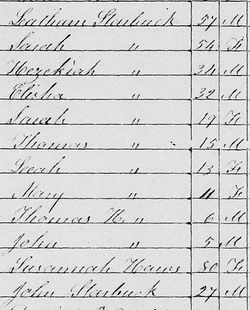 Latham Starbuck 57 M
Sarah " 54 F
Hezekiah " 34 M
Elisha " 22 M
Sarah " 17 F
Thomas " 15 M
Leeah " 13 F
Mary " 11 F
Thomas H " 6 M
John " 5 M
Susannah Haws 80 F
John Starbuck 27 M